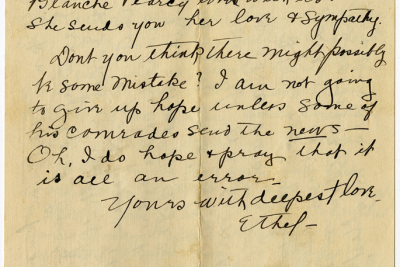 Blanche Pearcy
She sends you her love & sympathy.
Dont you think there might possibly
be some mistake? I am not going
to give up hope unless some of
his comrades send the news—
Oh, I do hope & pray that it
is all an error—
Yours with deepest love,
Ethel—